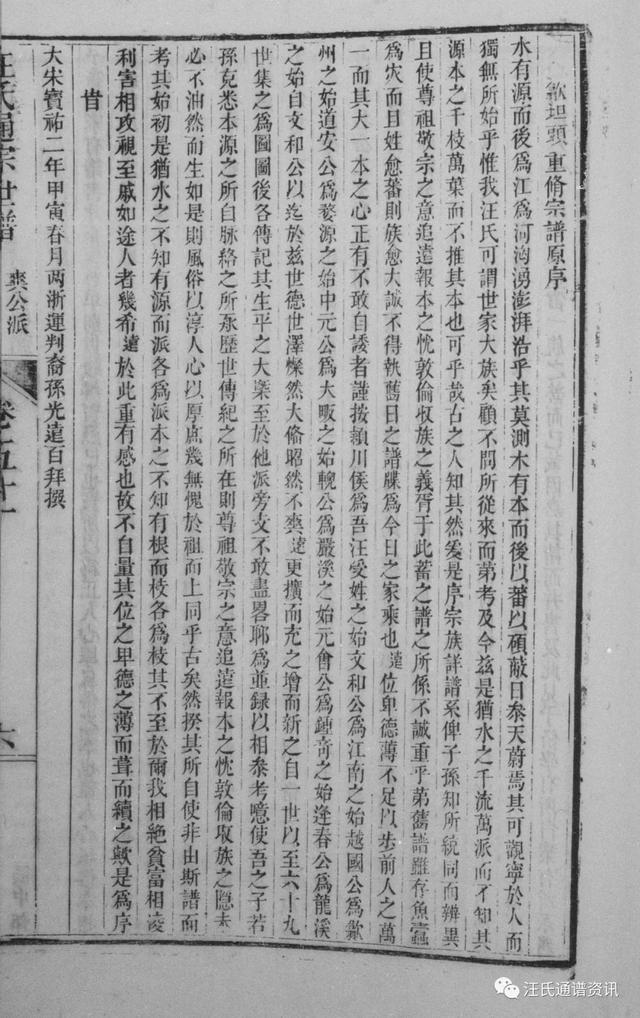 歙坦頭重脩宗譜原序
水有源而後爲江爲河洶湧澎湃浩乎其莫測木有本而後以蕃以碩蔽日參天蔚焉其可觀寧於人而
獨無所始乎惟我汪氏可謂世家大族矣顧不問所從來而第考及今兹是猶水之千流萬派而不知其
源本之千枝萬葉而不推其本也可乎哉古之人知其然爰是序宗族詳譜系俾子孫知所統同而辨異
且使尊祖敬宗之意追遠報本之忱敦倫收族之義胥于此蓄之譜之所係不誠重乎第舊譜雖存魚蠹
爲灾而且姓愈蕃則族愈大誠不得執舊日之譜牒爲今日之家乘也逵位卑德薄不足以步前人之萬
一而其大一本之心正有不敢自諉者謹按頴川侯爲吾汪受姓之始文和公爲江南之始越國公爲歙
州之始道安公爲婺源之始中元公爲大畈之始輗公爲嚴溪之始元會公爲鍾奇之始逢春公爲龍溪
之始自文和公以迄於兹世德世澤燦然大脩昭然不爽逵更擴而充之增而新之自一世以至六十九
世集之爲圖圖後各傳記其生平之大槩至於他派旁支不敢盡畧聊爲並録以相叅考噫使吾之子若
孫克悉本源之所自脉絡之所承歷世傳紀之所在則尊祖敬宗之意追遠報本之忱敦倫收族之隱未
必不油然而生如是則風俗以淳人心以厚庶幾無愧於祖而上同乎古矣然揆其所自使非由斯譜而
考其始初是猶水之不知有源而派各爲派本之不知有根而枝各爲枝其不至於爾我相絶貧富相凌
利害相攻視至戚如途人者幾希逵於此重有感也故不自量其位之卑德之薄而葺而續之歟是爲序
旹
大宋寳祐二年甲寅春月两浙運判裔孫光逵百拜撰
汪氏通宗世譜
爽公派
卷之五十一
六
汪氏通谱资讯